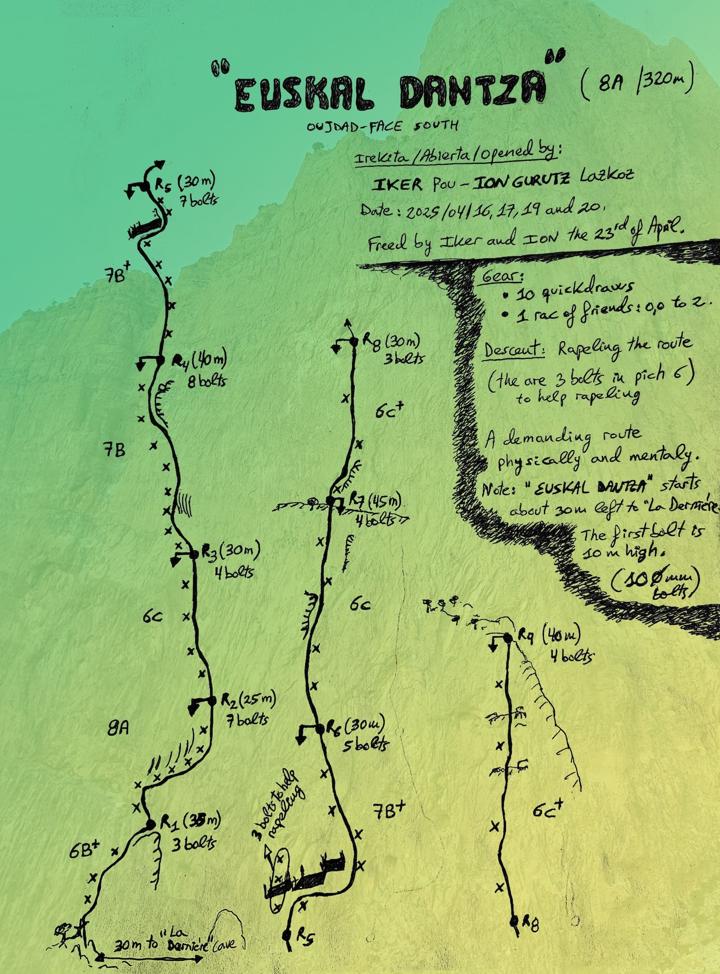 "EUSKAL DANTZA" (8A /320m)
OUJDAD-FACE SOUTH
Irekita/Abierta/opened by:
IKER Pou - ION GURUTZ Lazkoz
Date: 2025/04/16, 17, 19 and 20.
Freed by Iker and ION the 23rd of April.
Gear:
• 10 quickdraws
• 1 rac of friends: 0,0 to 2.
Descent: Rapeling the route
(the are 3 bolts in pich 6)
to help rapeling
A demanding route
physically and mentaly.
Note: "EUSKAL DANTZA" starts
about 30m left to "La Dernière
The first bolt is
10 m high.
(100mm)
bolts.
R5 (30m)
7 bolts
7B+
R4 (40m)
8 bolts
7B
R3 (30m)
4 bolts
6c
R2 (25m)
7 bolts
8A
R1 (35m)
3 bolts
6B+
30m to "La
Dernière" Cave
R8 (30m)
3 bolts
6c+
R7 (45m)
4 bolts
6c
R6 (30m)
5 bolts
3 bolts to help
rapeling
7B+
R5
R9 (40m)
4 bolts
6c+
R8